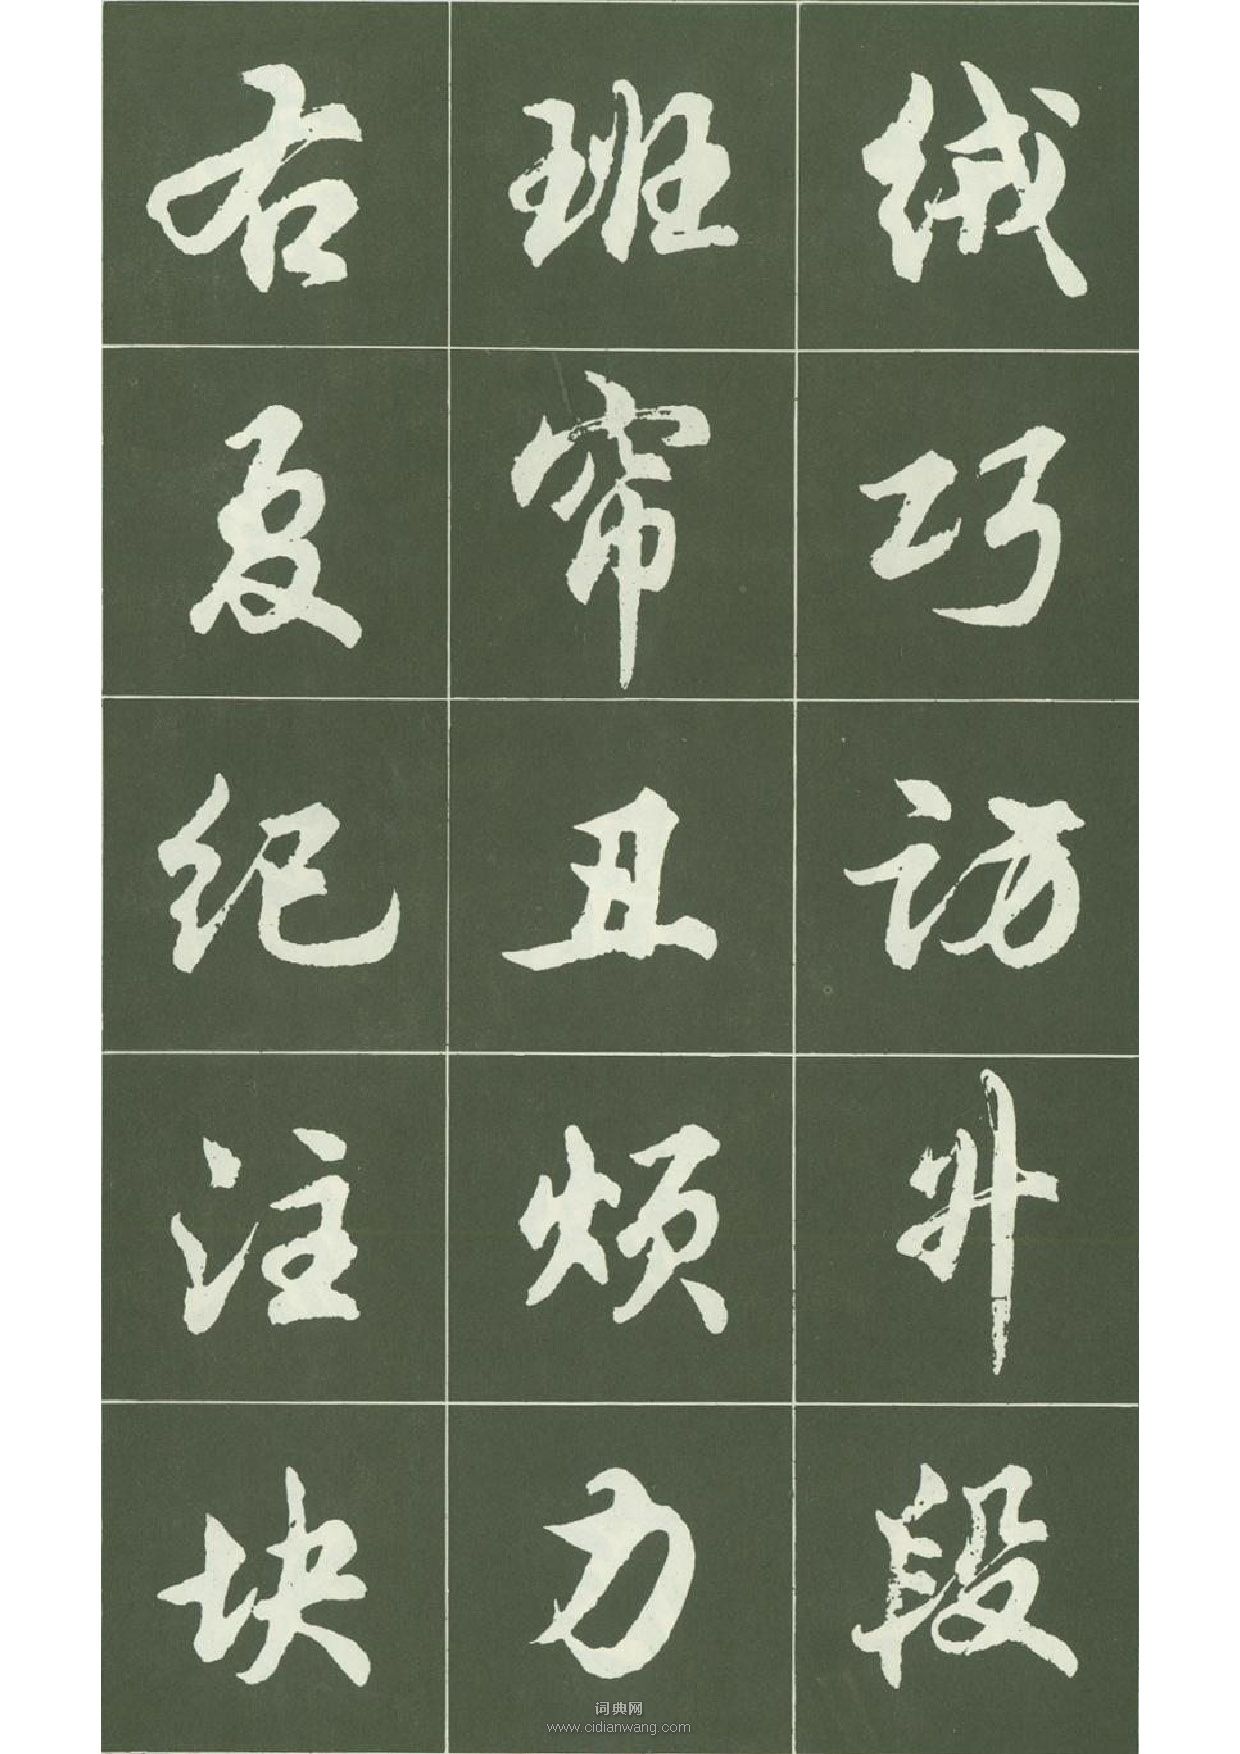 绒巧访升段
班帘丑烦力
右复纪注块
词典网
www.cidianwang.com